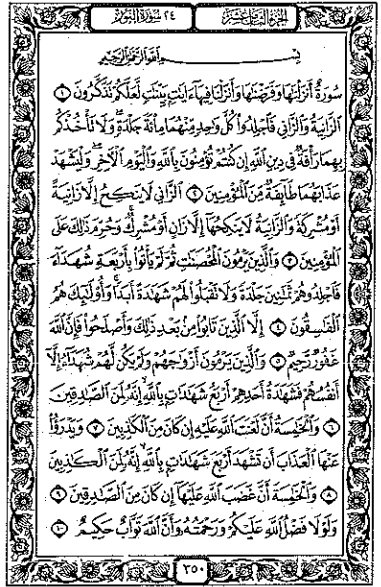 الجزء الثامن عشر ٢٤ سورة النور
بسم الله الرحمن الرحيم
سُورَةٌ أَنزَلْنَاهَا وَفَرَضْنَاهَا وَأَنزَلْنَا فِيهَا ءَايَٰتٍ بَيِّنَٰتٍ لَّعَلَّكُمْ تَذَكَّرُونَ ١
الزَّانِيَةُ وَالزَّانِي فَاجْلِدُوا كُلَّ وَٰحِدٍ مِّنْهُمَا مِا۟ئَةَ جَلْدَةٍ وَلَا تَأْخُذْكُم
بِهِمَا رَأْفَةٌ فِي دِينِ اللَّهِ إِن كُنتُمْ تُؤْمِنُونَ بِاللَّهِ وَالْيَوْمِ الْآخِرِ وَلْيَشْهَدْ
عَذَابَهُمَا طَائِفَةٌ مِّنَ الْمُؤْمِنِينَ ٢ الزَّانِي لَا يَنكِحُ إِلَّا زَانِيَةً
أَوْ مُشْرِكَةً وَالزَّانِيَةُ لَا يَنكِحُهَا إِلَّا زَانٍ أَوْ مُشْرِكٌ وَحُرِّمَ ذَٰلِكَ عَلَى
الْمُؤْمِنِينَ ٣ وَالَّذِينَ يَرْمُونَ الْمُحْصَنَٰتِ ثُمَّ لَمْ يَأْتُوا بِأَرْبَعَةِ شُهَدَاءَ
فَاجْلِدُوهُمْ ثَمَٰنِينَ جَلْدَةً وَلَا تَقْبَلُوا لَهُمْ شَهَٰدَةً أَبَدًا وَأُولَٰئِكَ هُمُ
الْفَٰسِقُونَ ٤ إِلَّا الَّذِينَ تَابُوا مِن بَعْدِ ذَٰلِكَ وَأَصْلَحُوا فَإِنَّ اللَّهَ
غَفُورٌ رَّحِيمٌ ٥ وَالَّذِينَ يَرْمُونَ أَزْوَٰجَهُمْ وَلَمْ يَكُن لَّهُمْ شُهَدَاءُ إِلَّا
أَنفُسُهُمْ فَشَهَٰدَةُ أَحَدِهِمْ أَرْبَعُ شَهَٰدَٰتٍ بِاللَّهِ إِنَّهُ لَمِنَ الصَّٰدِقِينَ
٦ وَالْخَٰمِسَةُ أَنَّ لَعْنَتَ اللَّهِ عَلَيْهِ إِن كَانَ مِنَ الْكَٰذِبِينَ ٧ وَيَدْرَؤُا
عَنْهَا الْعَذَابَ أَن تَشْهَدَ أَرْبَعَ شَهَٰدَٰتٍ بِاللَّهِ إِنَّهُ لَمِنَ الْكَٰذِبِينَ
٨ وَالْخَٰمِسَةَ أَنَّ غَضَبَ اللَّهِ عَلَيْهَا إِن كَانَ مِنَ الصَّٰدِقِينَ ٩
وَلَوْلَا فَضْلُ اللَّهِ عَلَيْكُمْ وَرَحْمَتُهُ وَأَنَّ اللَّهَ تَوَّابٌ حَكِيمٌ ١٠
٣٥٠